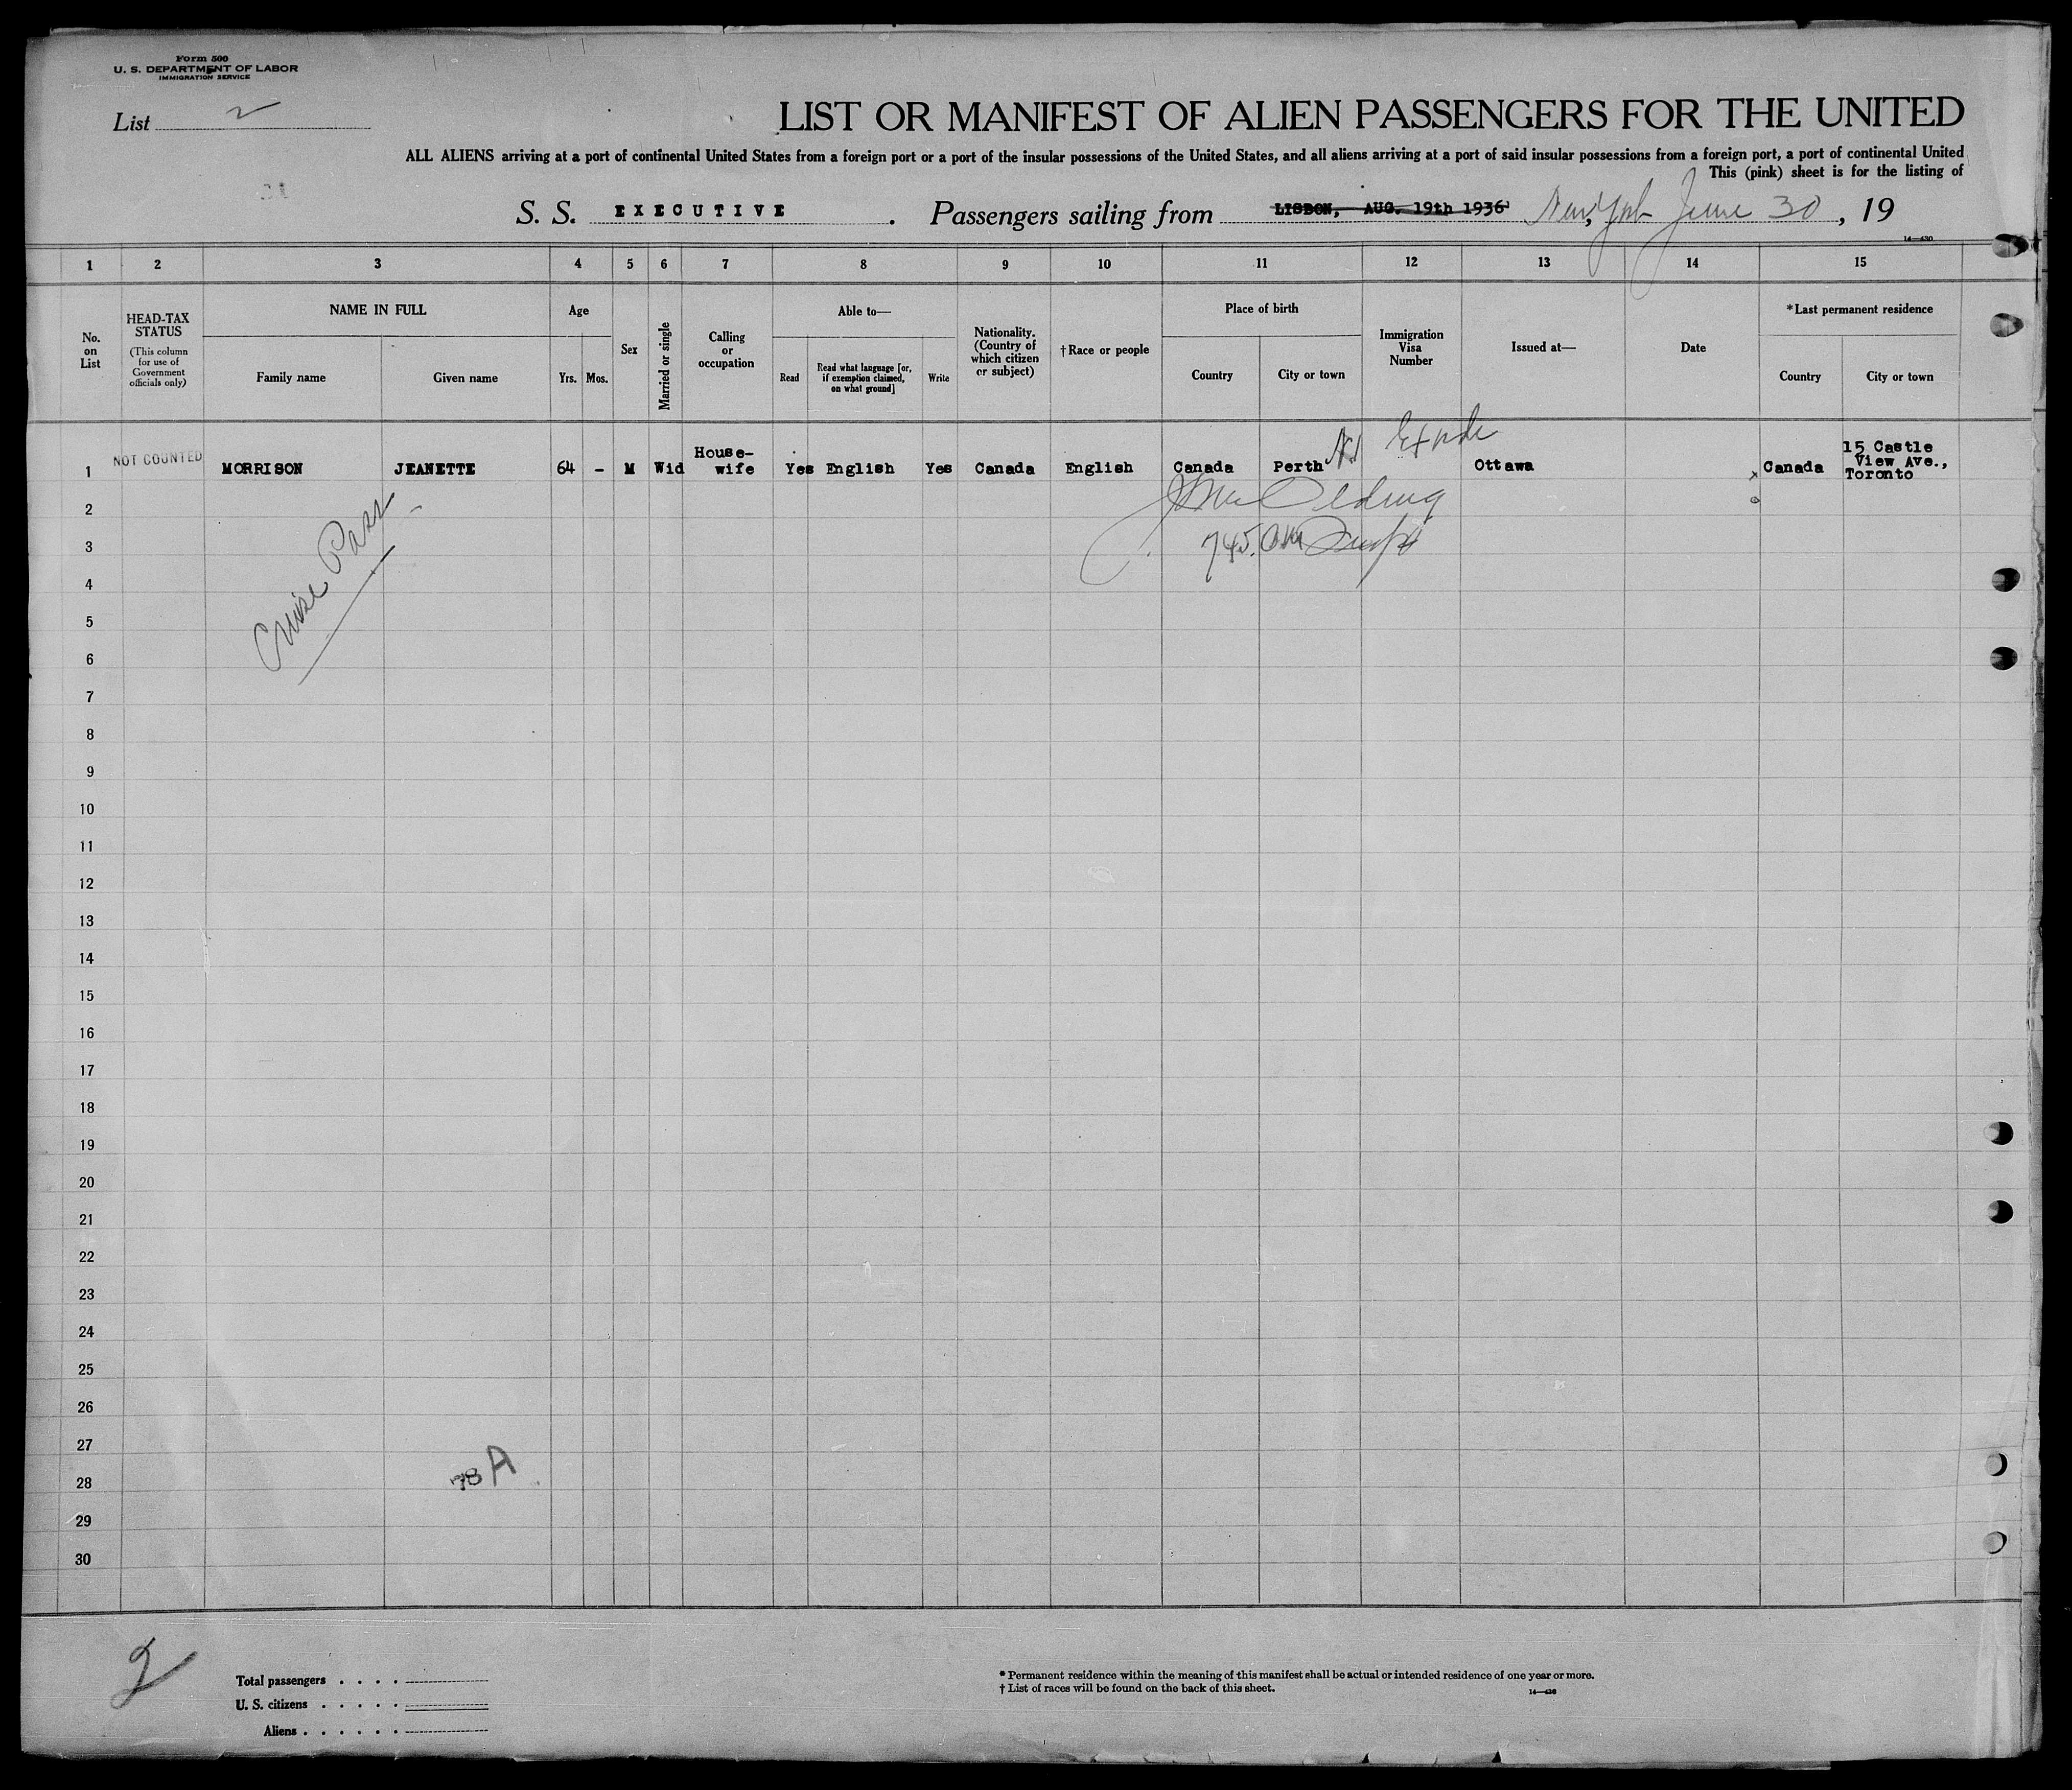 Form 500
U. S. DEPARTMENT OF LABOR
IMMIGRATION SERVICE
List 2
LIST OR MANIFEST OF ALIEN PASSENGERS FOR THE UNITED
ALL ALIENS arriving at a port of continental United States from a foreign port or a port of the insular possessions of the United States, and all aliens arriving at a port of said insular possessions from a foreign port, a port of continental United
This (pink) sheet is for the listing of
S. S. EXECUTIVE . Passengers sailing from LISBON, AUG. 19th 1936 New York June 30 , 19
14—430
1 2 3 4 5 6 7 8 9 10 11 12 13 14 15
No. on List
HEAD-TAX STATUS
(This column for use of Government officials only)
NAME IN FULL
Family name Given name
Age
Yrs. Mos.
Sex
Married or single
Calling or occupation
Able to—
Read
Read what language [or, if exemption claimed, on what ground]
Write
Nationality. (Country of which citizen or subject)
†Race or people
Place of birth
Country City or town
Immigration Visa Number
Issued at—
Date
*Last permanent residence
Country City or town
1 NOT COUNTED MORRISON JEANETTE 64 - M Wid House-wife Yes English Yes Canada English Canada Perth Ottawa x Canada 15 Castle View Ave., Toronto
2
3 745
4
Cruise Pass
5
6
7
8
9
10
11
12
13
14
15
16
17
18
19
20
21
22
23
24
25
26
27
28 78 A
29
30
2
Total passengers
U. S. citizens
Aliens
* Permanent residence within the meaning of this manifest shall be actual or intended residence of one year or more.
† List of races will be found on the back of this sheet.